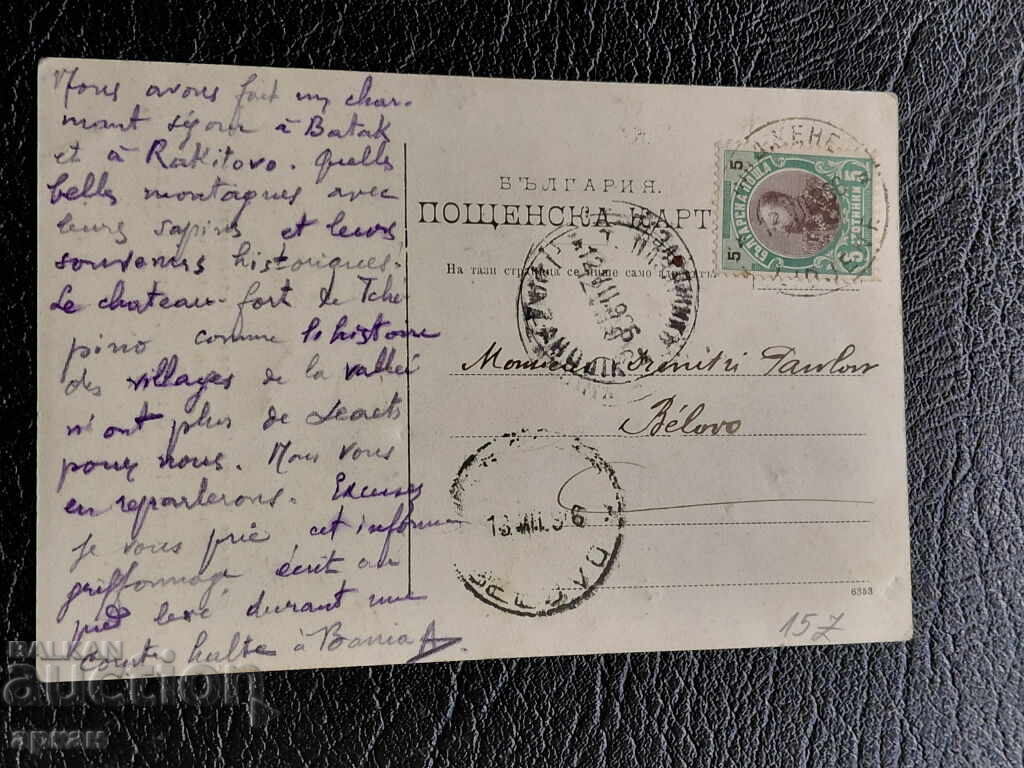 Nous avons fait un char-
mant séjour à Batak
et à Rakitovo. Quelles
belles montagnes avec
leurs sapins et leurs
souvenirs historiques.
Le chateau-fort de Tché
pino comme l'histoire
des villages de la vallée
n'ont plus de secrets
pour nous. Nous vous
en reparlerons. Excusez
je vous prie cet informe
griffonnage écrit au
pied levé durant une
court halte à Bania
БЪЛГАРИЯ.
ПОЩЕНСКА КАРТ
На тази страница се пише само адресътъ
5
5
БЪЛГАРСКА ПОЩА
СТОТИНКИ
Т. ПАЗАРДЖИКЪ
13.VII.906
Monsieur Dimitri Pavlov
Bélovo
6353
157
BALKAN
auction
аркан